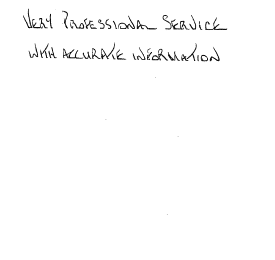 VERY PROFESSIONAL SERVICE
WITH ACCURATE INFORMATION